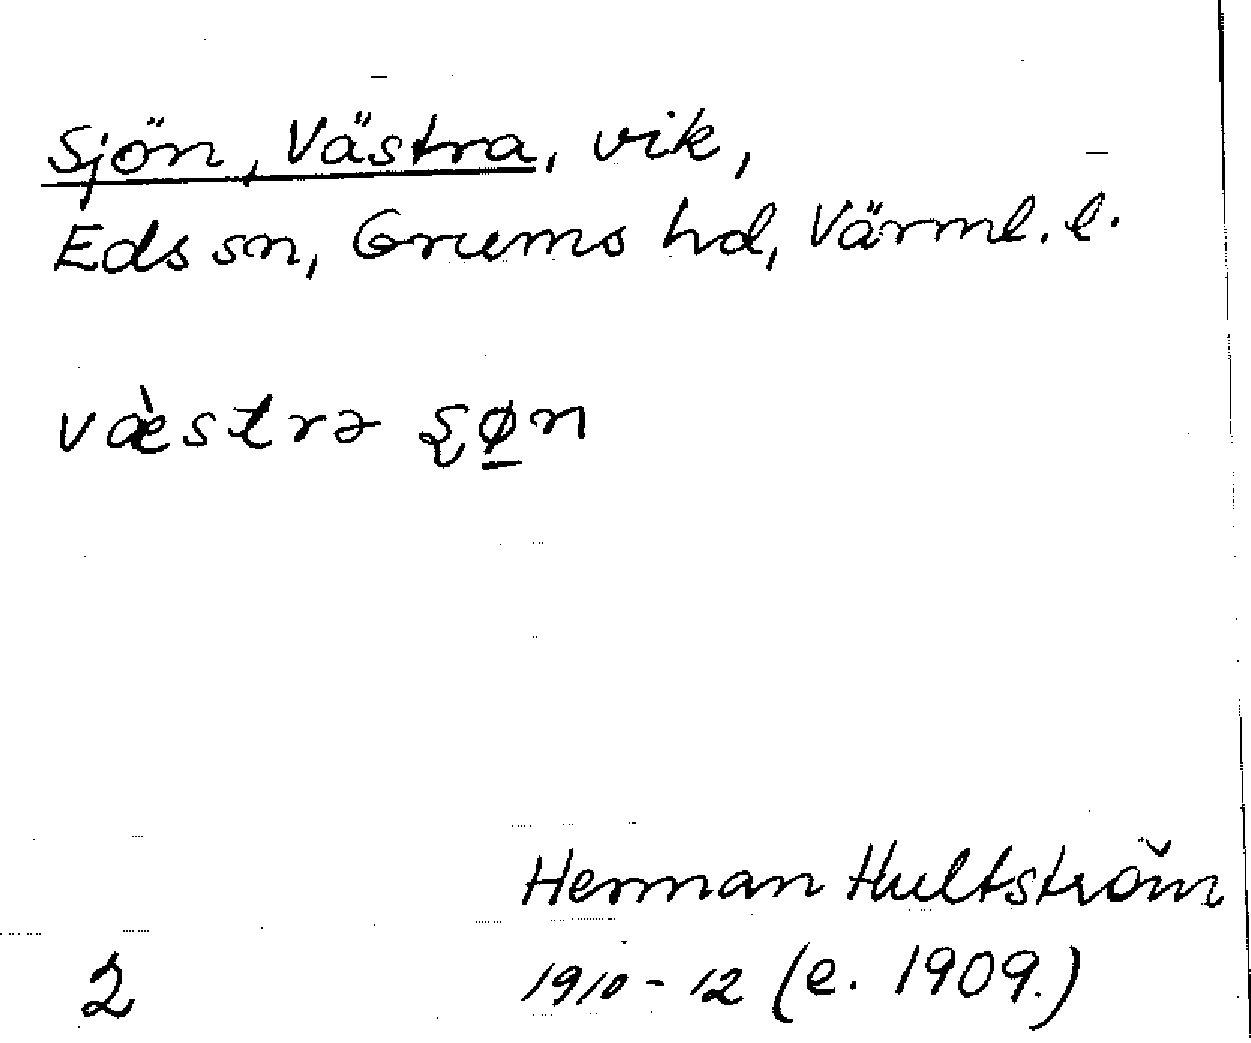 Sjön, Västra, vik,
Eds sn, Grums hd, Värml. l.
væ̀strə ʂø̲n
Herman Hultström
2 1910-12 (e. 1909.)